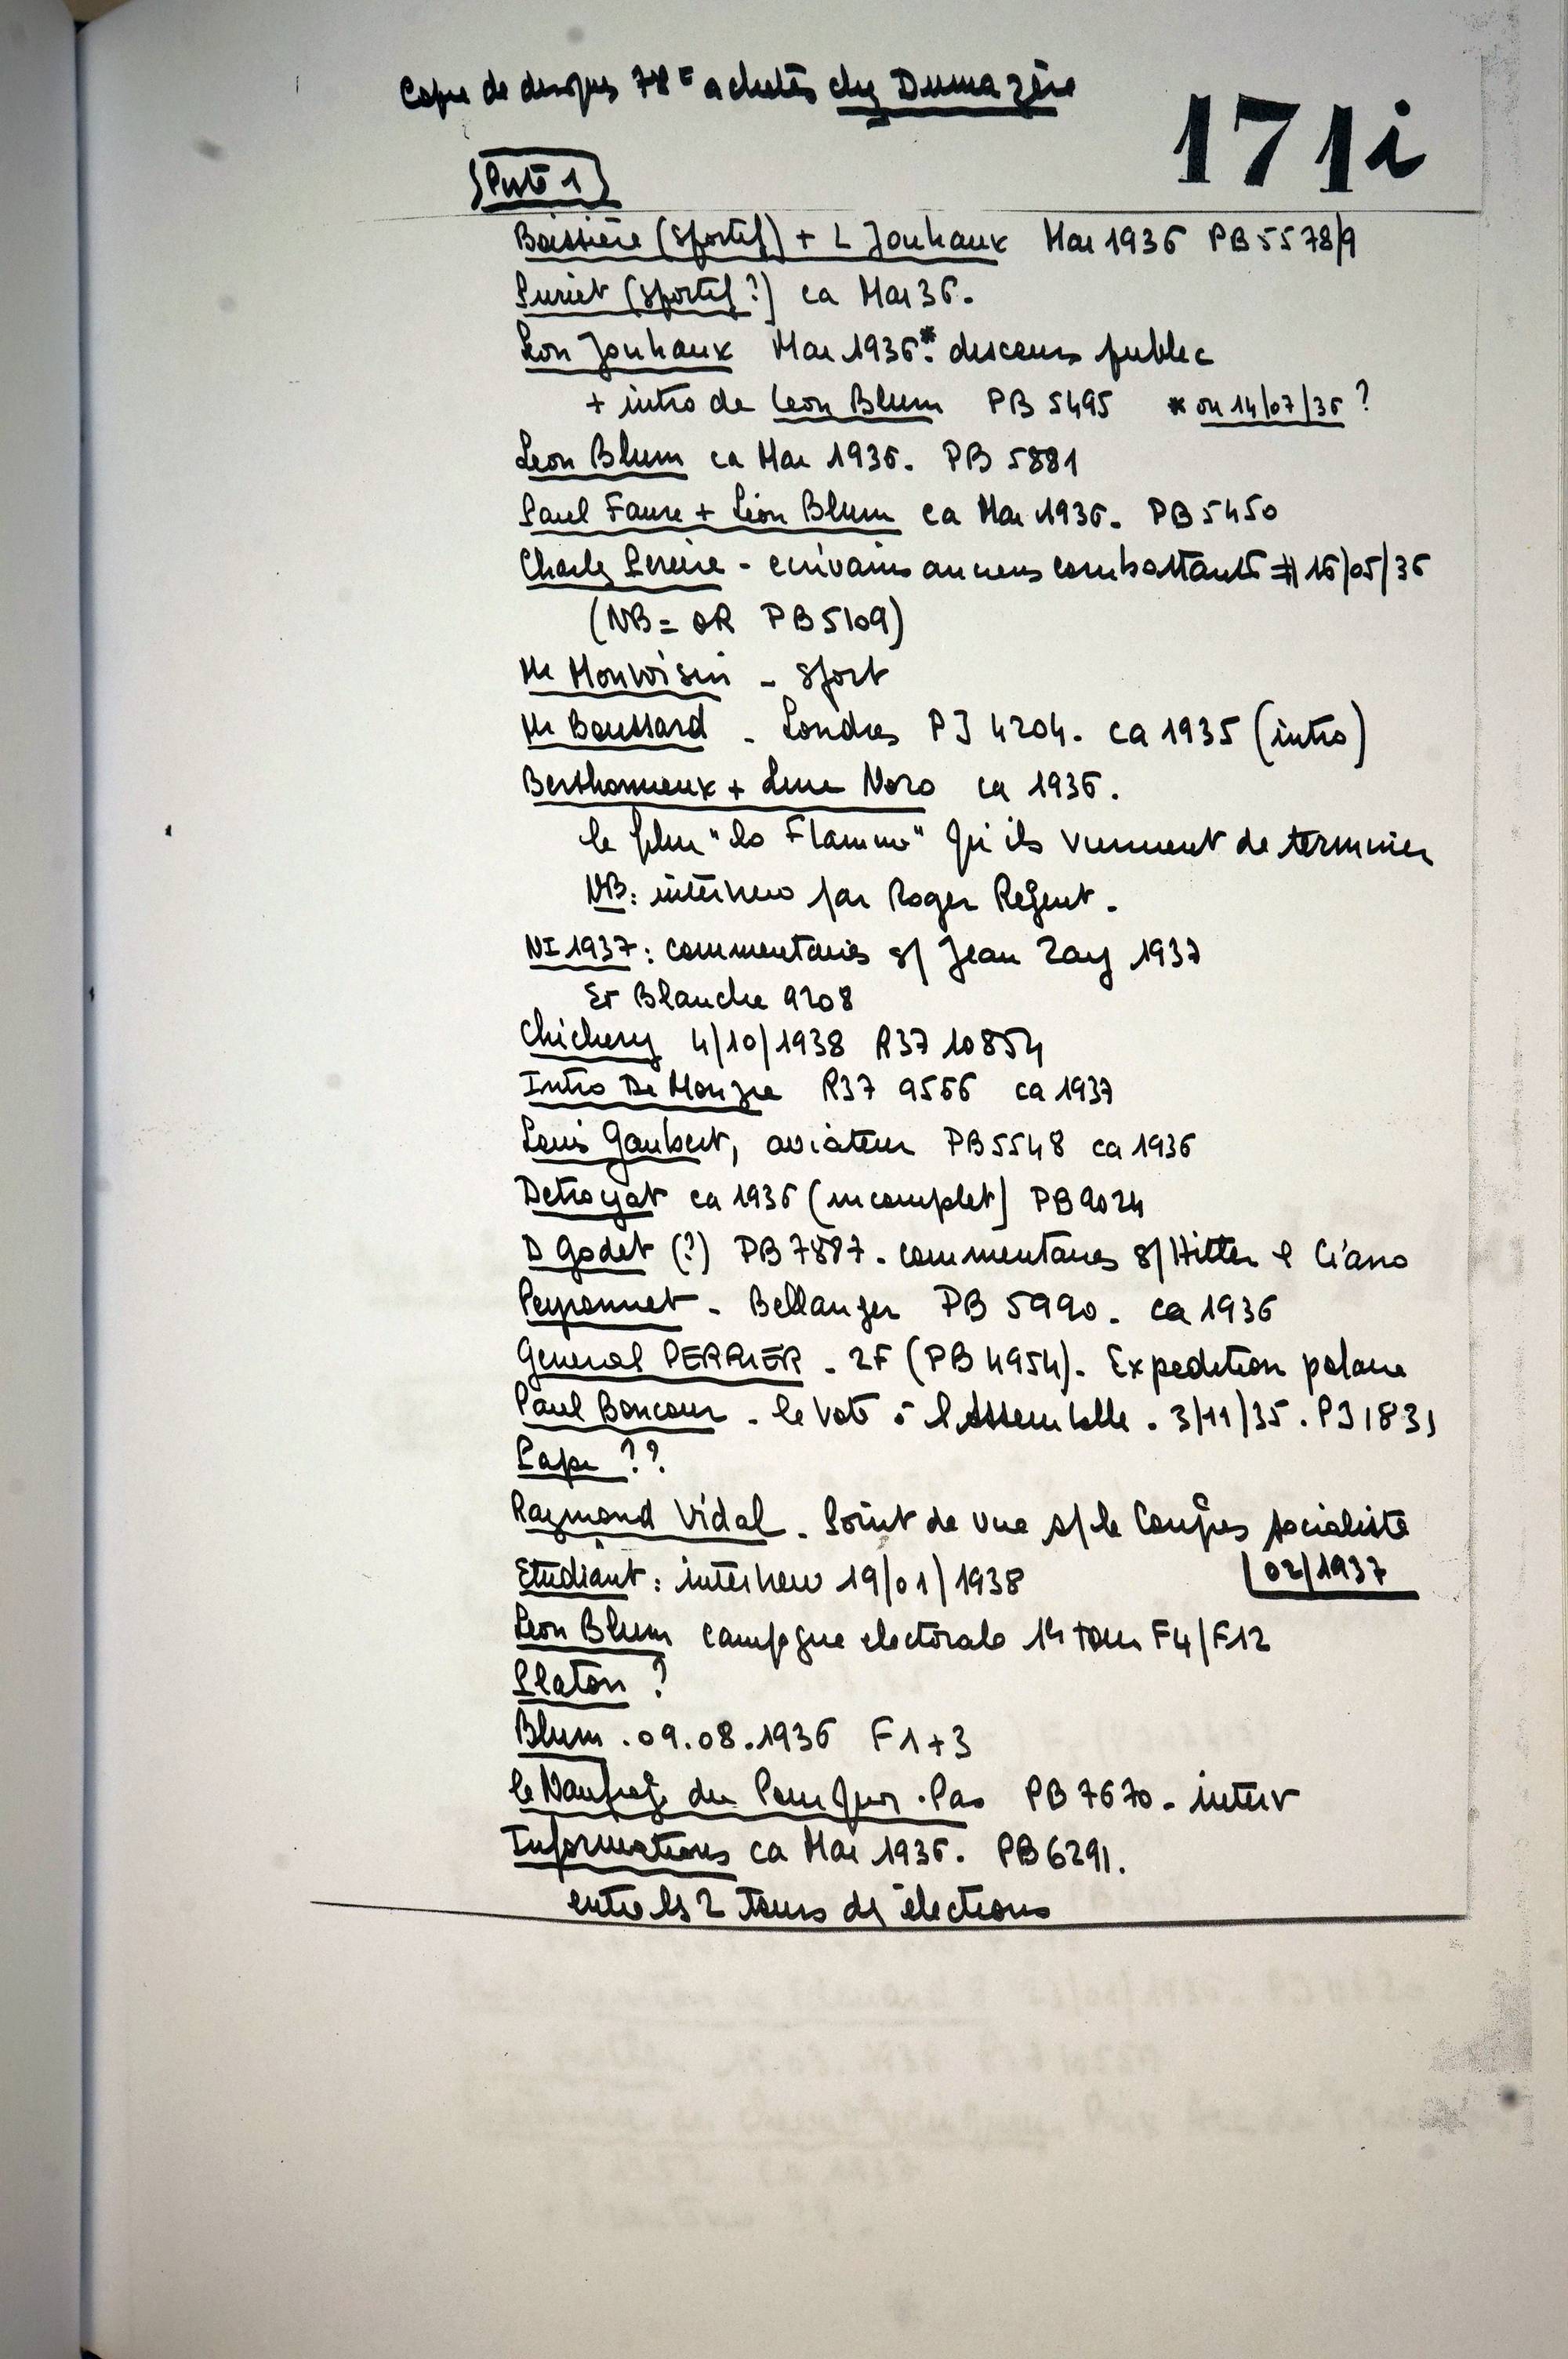 Copie de disques 78T achetés chez Dumazère
171i
Piste 1
Boissière (sportif) + L Jouhaux Mai 1936 PB 5578/9
(sportif?) ca Mai 36.
Leon Jouhaux Mai 1936*. discours public
+ intro de Leon Blum PB 5495 * ou 14/07/36 ?
Leon Blum ca Mai 1936. PB 5881
Paul Faure + Léon Blum ca Mai 1936. PB 5450
Charles - écrivains anciens combattants # 16/05/36
(NB= OR PB 5109)
Mr Monvoisin - sport
Mr Boussard - Londres PJ 4204. ca 1935 (intro)
Berthomieux + Line Noro ca 1936.
le film "la Flamme" qu'ils viennent de terminer
NB: interview par Roger Régent.
NI 1937: commentaires s/ Jean Zay 1937
Et Blanche 9208
Chichery 4/10/1938 R37 10854
Intro De Monzie R37 9566 ca 1937
Louis Gaubert, aviateur PB 5548 ca 1936
Detroyat ca 1936 (incomplet) PB 9024
D Godet (?) PB 7887. commentaires s/ Hitler & Ciano
Peyronnet - Bellanger PB 5990. ca 1936
General PERRIER - 2F (PB 4954). Expedition polaire
Paul Boncour - le vote à l'Assemblée. 3/11/35. PJ 1831
Pape ??
Raymond Vidal - Point de vue s/ le Congrès socialiste
02/1937
Etudiant: interview 19/01/1938
Leon Blum campagne electorale 1er tour F4/F12
Platon ?
Blum . 09.08.1936 F1+3
le Naufrage du Pourquoi-Pas PB 7670 - interv
Informations ca Mai 1936. PB 6291.
entre les 2 tours des élections